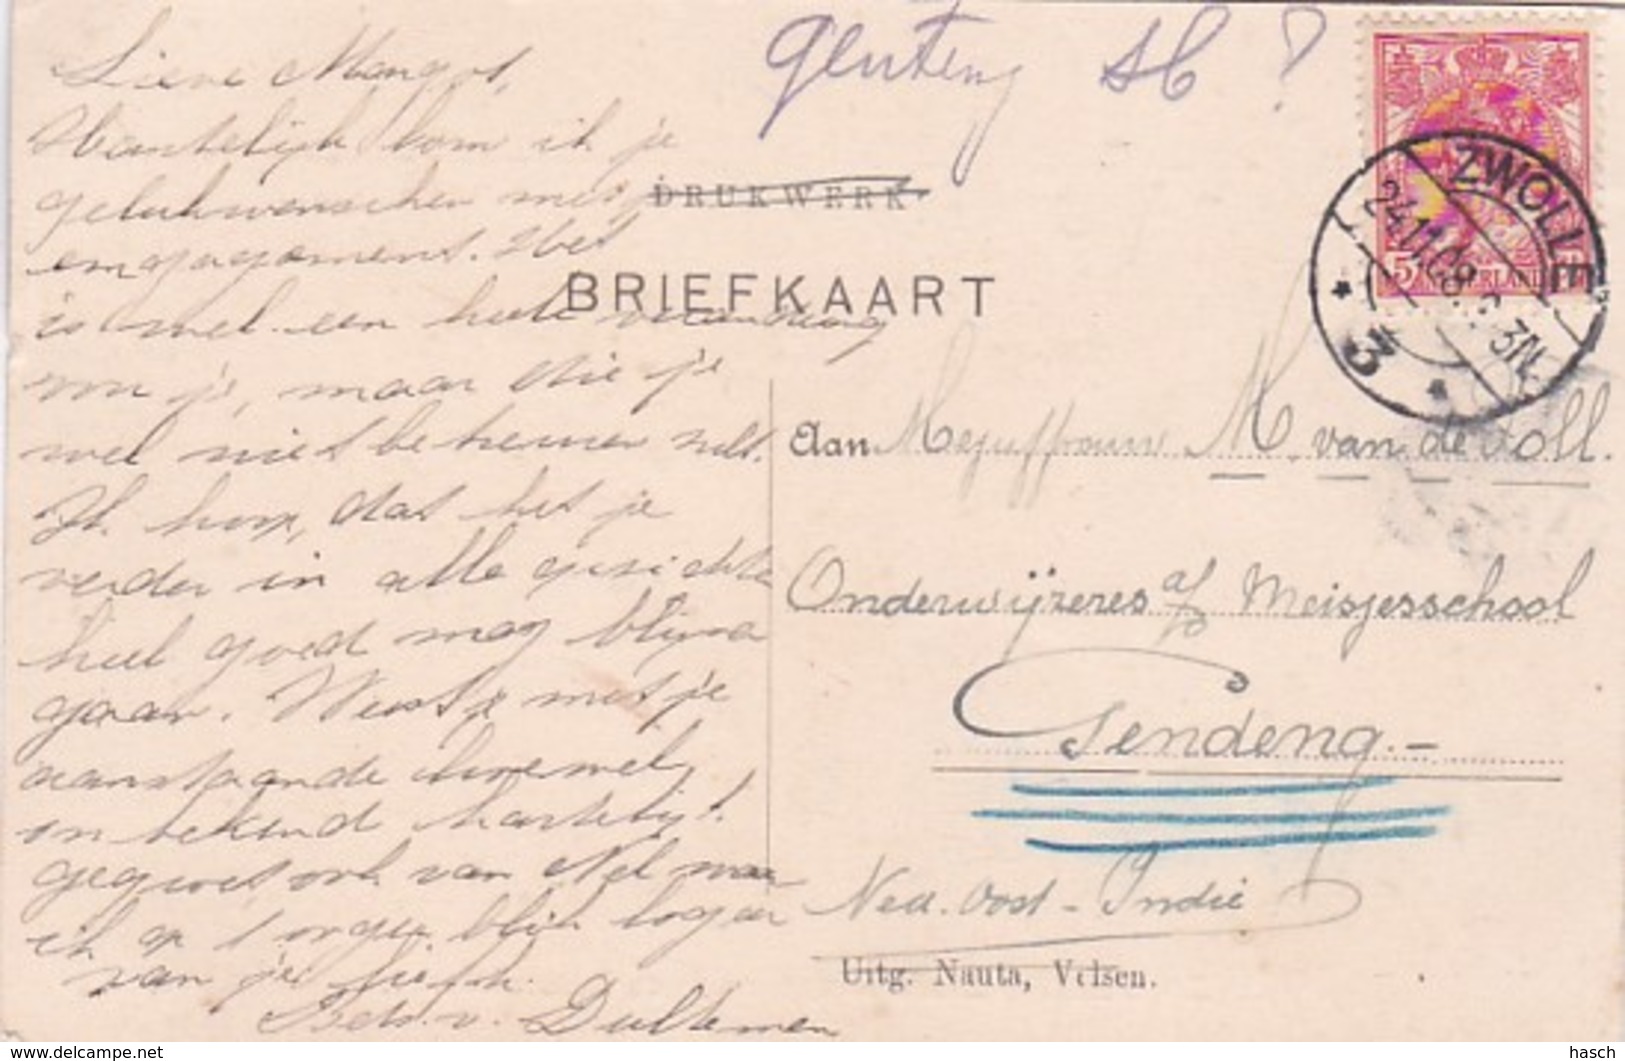 Lieve Margot,
Hartelijk kom ik je
gelukwenschen met je
engagement. Het
is wel een heele verandering
voor je, maar die je
wel niet betreuren zult.
Ik hoop, dat het je
verder in alle opzichten
heel goed mag blijven
gaan. Wees met je
aanstaande
onbekend hartelijk
gegroet ook van Nel waar
ik op 't oogenblik logeer
van je liefh.
v. Dultemen
Genteng SC ?
DRUKWERK
BRIEFKAART
NEDERLAND
5
ZWOLLE
24.11.09. 3N.
3
Aan Mejuffrouw M. van de Poll.
Onderwijzeres a/d Meisjesschool
Gendeng.-
Ned. Oost-Indië
Uitg. Nauta, Velsen.
www.delcampe.net
hasch